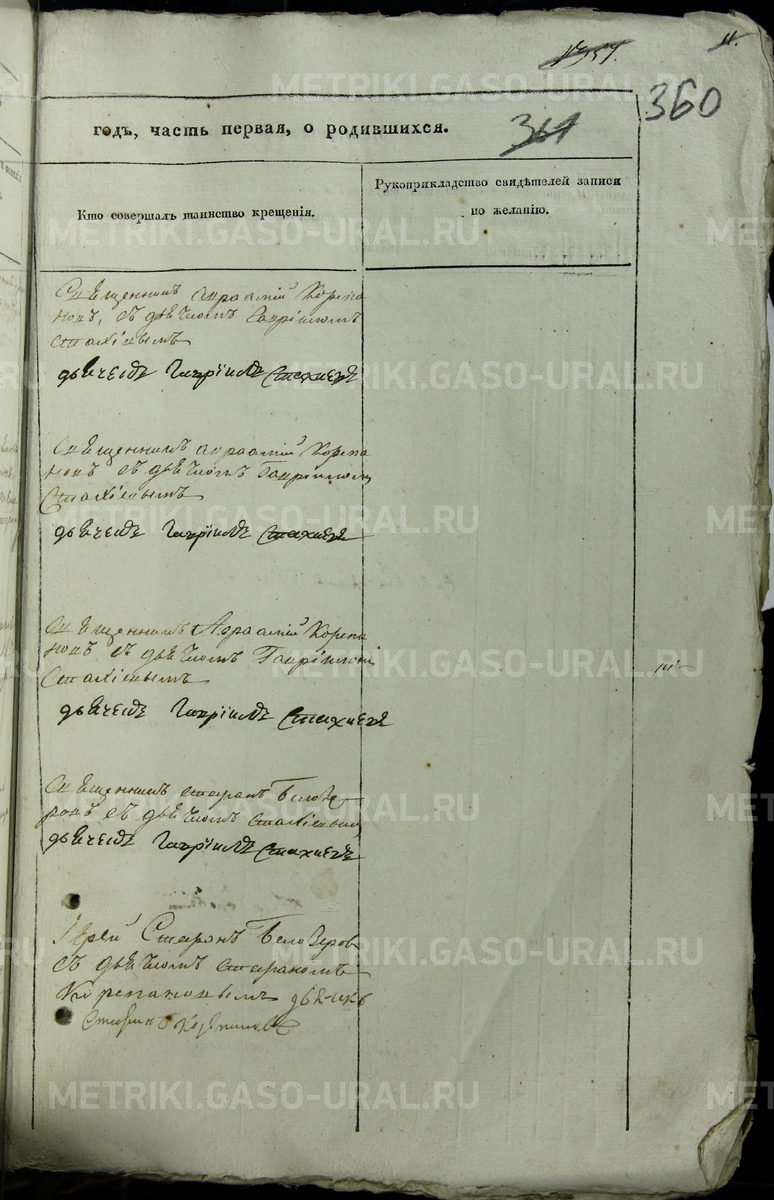 11.
360
361
годъ, часть первая, о родившихся.
Кто совершалъ таинство крещенія.
Рукоприкладство свидѣтелей записи
по желанію.
Священникъ Авраамій Корепа
новъ, съ дьячкомъ Гавріиломъ
Стахіевымъ
дьячекъ Гавріилъ Стахиевъ
Священникъ Авраамій Корепа
новъ съ дьячкомъ Гавріиломъ
Стахіевымъ
дьячекъ Гавріилъ Стахиевъ
Священникъ Авраамій Корепа
новъ съ дьячкомъ Гавріиломъ
Стахіевымъ
дьячекъ Гавріилъ Стахиевъ
Священникъ Стефанъ Белозе
ровъ съ дьячкомъ Стахіевымъ
дьячекъ Гавріилъ Стахиевъ
Іерей Стефанъ Белозеровъ
съ дьячкомъ Стефаномъ
Корепановымъ дьячекъ
Стефанъ
METRIKI.GASO-URAL.RU